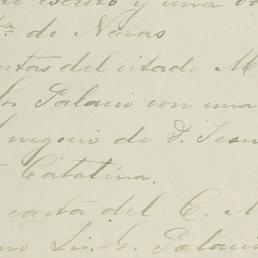 escrito y una
de Navas
del citado M
Palacio con una
negocio de D. Juan
Catalina.
carta del C. M
Lic. G. Palacio